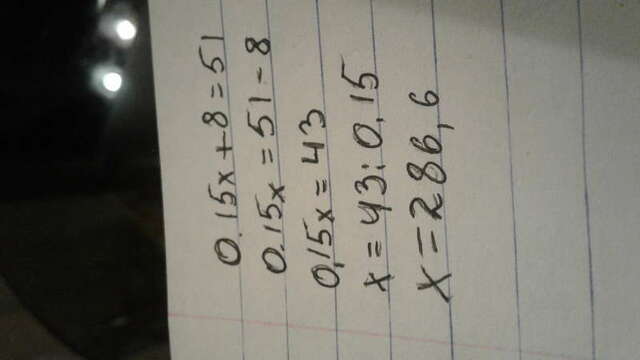 0.15x+8=51
0.15x=51-8
0,15x=43
x=43:0,15
x=286,6